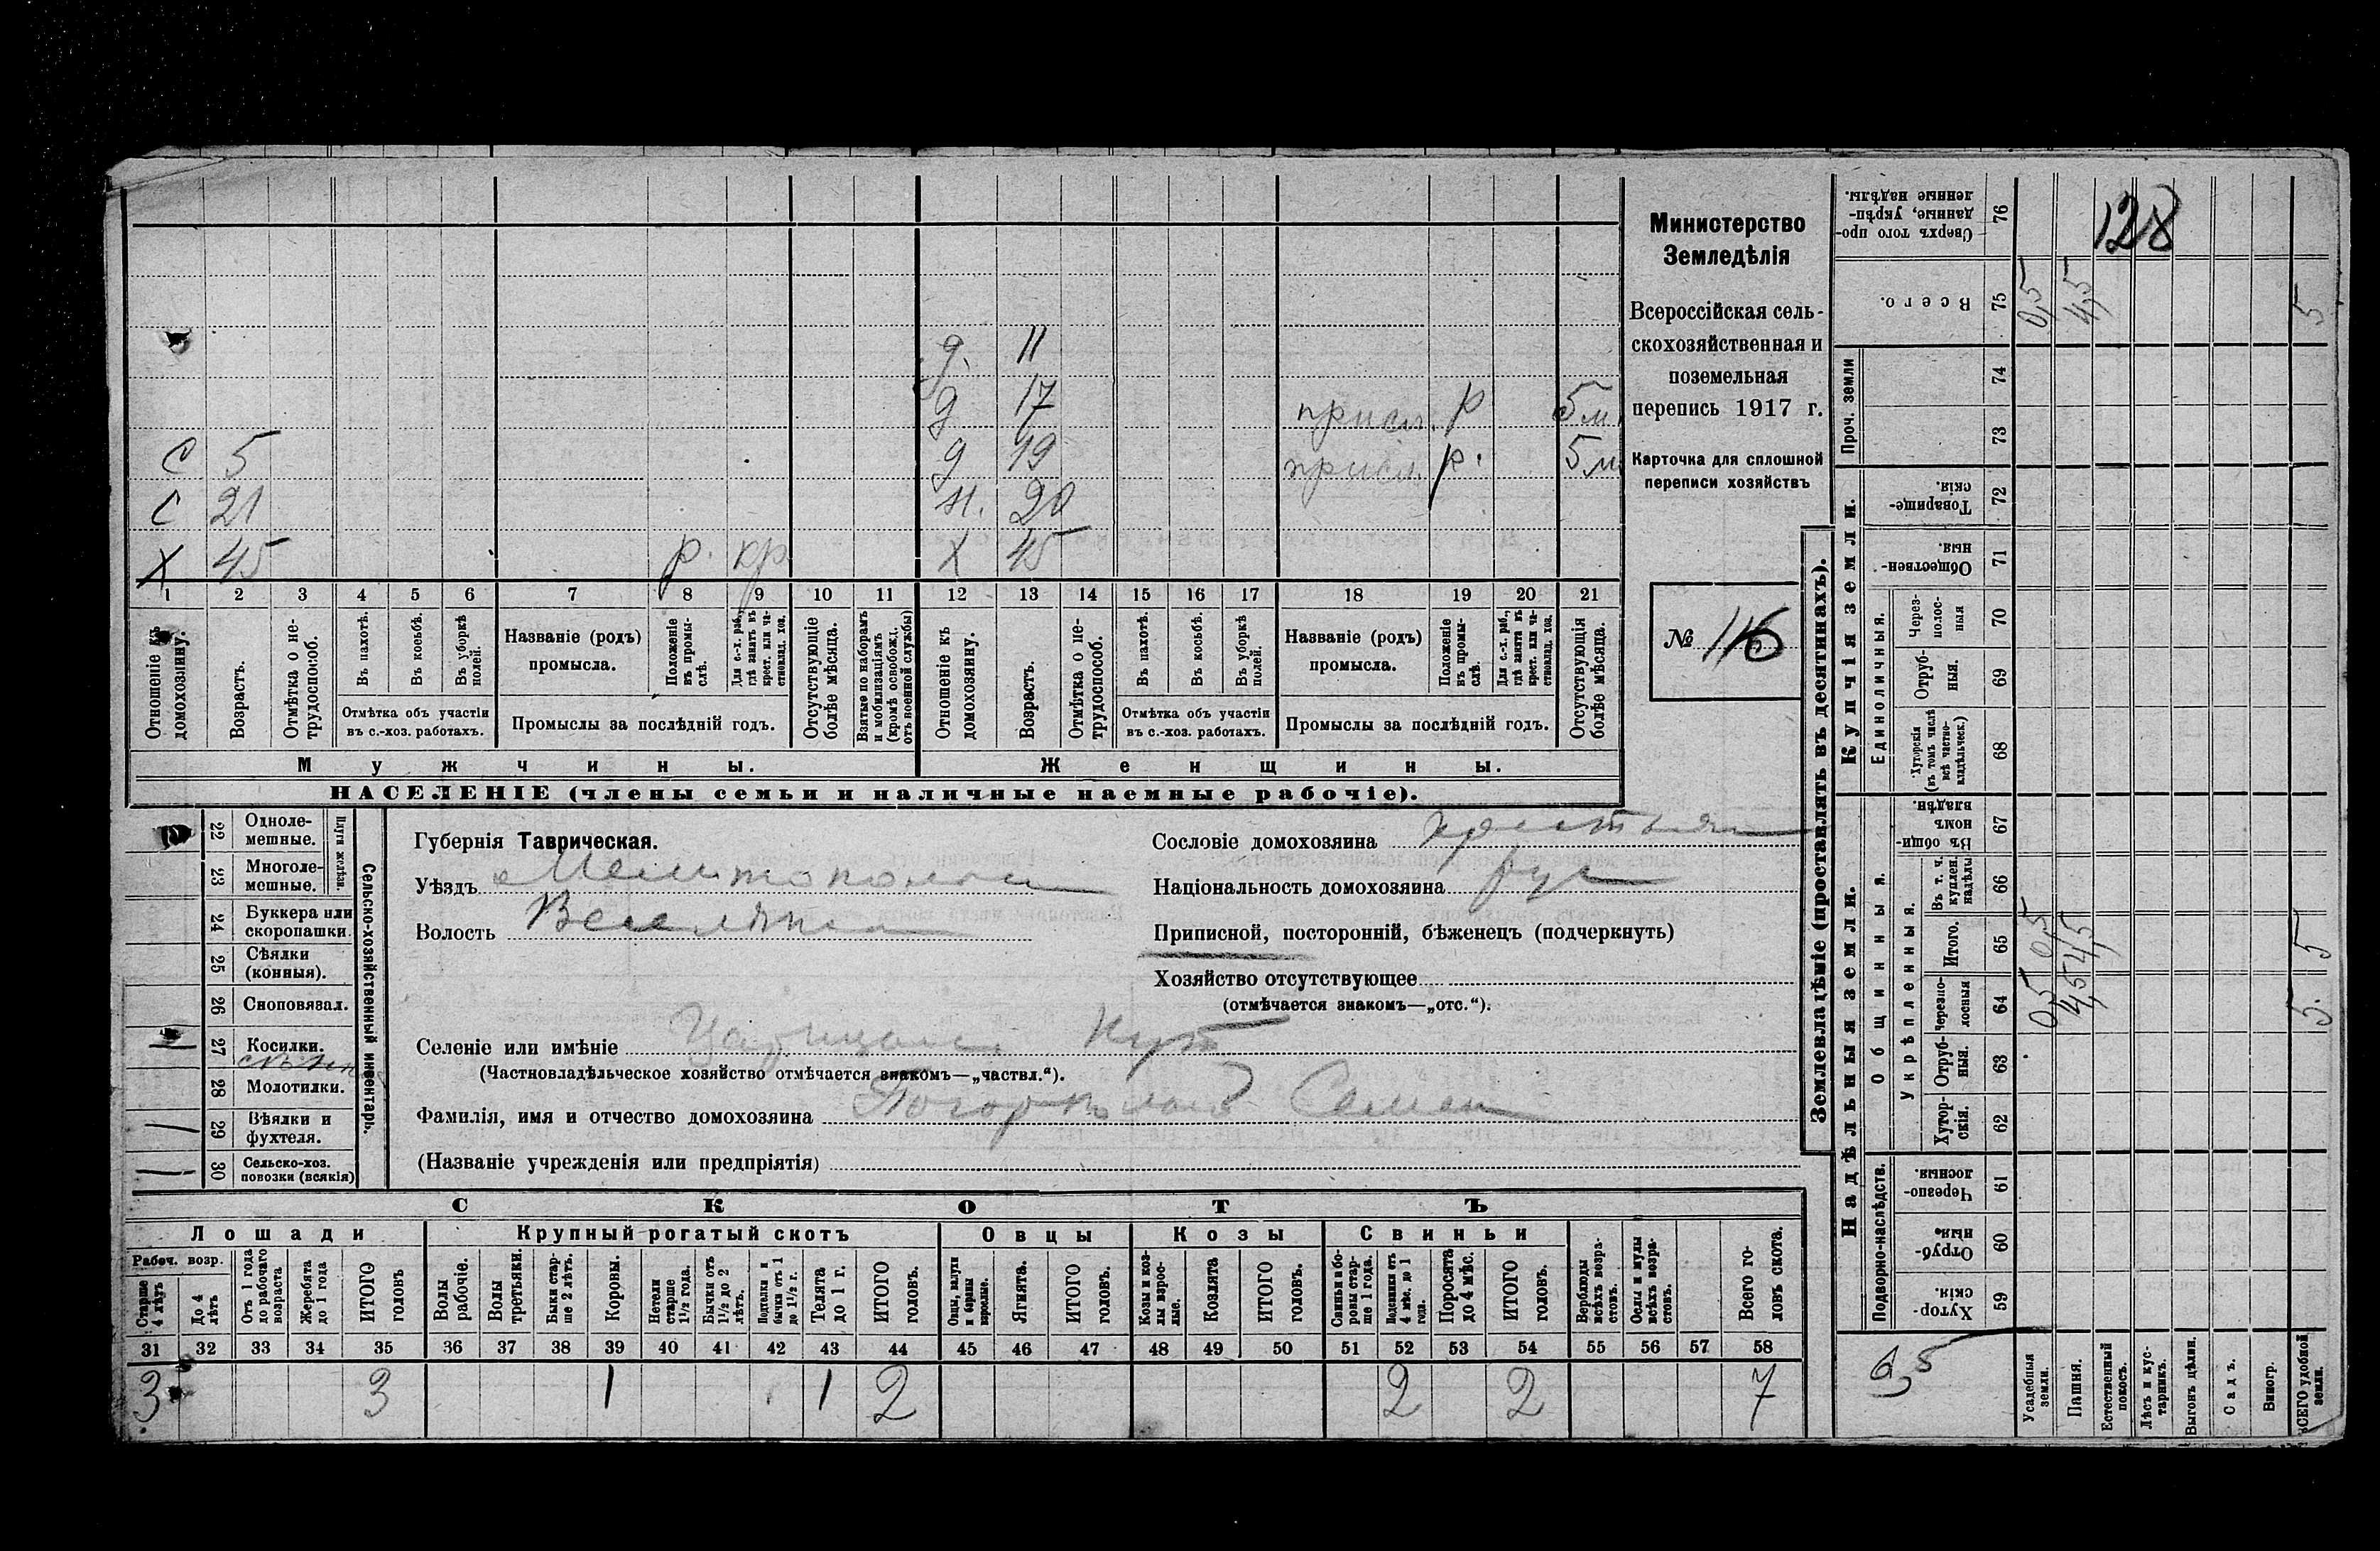 128
Министерство
Земледѣлія
Всероссійская сель-
скохозяйственная и
поземельная
перепись 1917 г.
Карточка для сплошной
переписи хозяйствъ
№ 116
д. 11
д 17 присл. р 5 м.
С 5 д 19 присл. р. 5 м
С 21 н. 20
Х 45 р. кр Х 45
1 2 3 4 5 6 7 8 9 10 11 12 13 14 15 16 17 18 19 20 21
Отношеніе къ домохозяину.
Возрастъ.
Отмѣтка о не-трудоспособ.
Въ пахотѣ.
Въ косьбѣ.
Въ уборкѣ полей.
Отмѣтка объ участіи въ с.-хоз. работахъ.
Названіе (родъ) промысла.
Положеніе въ промы-слѣ.
Для с.-х. раб., гдѣ занятъ въ крест. или ча-стновлад. хоз.
Промыслы за послѣдній годъ.
Отсутствующіе болѣе мѣсяца.
Взятые по наборамъ и мобилизаціямъ (кромѣ освобожд. отъ военной службы)
Отношеніе къ домохозяину.
Возрастъ.
Отмѣтка о не-трудоспособ.
Въ пахотѣ.
Въ косьбѣ.
Въ уборкѣ полей.
Отмѣтка объ участіи въ с.-хоз. работахъ.
Названіе (родъ) промысла.
Положеніе въ промы-слѣ.
Для с.-х. раб., гдѣ занята въ крест. или ча-стновлад. хоз.
Промыслы за послѣдній годъ.
Отсутствующія болѣе мѣсяца.
Мужчины. Женщины.
НАСЕЛЕНІЕ (члены семьи и наличные наемные рабочіе).
22 Одноле-мешные.
23 Многоле-мешные.
Плуги желѣзн.
24 Буккера или скоропашки.
25 Сѣялки (конныя).
26 Сноповязал.
27 Косилки.
28 Молотилки.
29 Вѣялки и фухтеля.
30 Сельско-хоз. повозки (всякія)
Сельско-хозяйственный инвентарь.
Губернія Таврическая.
Уѣздъ Мелитопольск
Волость Веселянск
Сословіе домохозяина крестьян
Національность домохозяина рус
Приписной, посторонній, бѣженецъ (подчеркнуть)
Хозяйство отсутствующее
(отмѣчается знакомъ—„отс.“).
Селеніе или имѣніе Царицын Кут
(Частновладѣльческое хозяйство отмѣчается знакомъ—„частвл.“).
Фамилія, имя и отчество домохозяина Семен
(Названіе учрежденія или предпріятія)
СКОТЪ
Лошади Крупный рогатый скотъ Овцы Козы Свиньи
Рабоч. возр.
Старше 4 лѣтъ
До 4 лѣтъ
Отъ 1 года до рабочаго возраста
Жеребята до 1 года
ИТОГО головъ
Волы рабочіе.
Волы третьяки.
Быки стар-ше 2 лѣтъ.
Коровы.
Нетели старше 1½ года.
Бычки отъ 1½ до 2 лѣтъ.
Подтелки и бычки отъ 1 до 1½ г.
Телята до 1 г.
ИТОГО головъ.
Овцы, валухи и бараны взрослые.
Ягнята.
ИТОГО головъ.
Козы и коз-лы взрос-лые.
Козлята
ИТОГО головъ.
Свиньи и бо-ровы стар-ше 1 года.
Подсвинки отъ 4 мѣс. до 1 года.
Поросята до 4 мѣс.
ИТОГО головъ.
Верблюды всѣхъ возра-стовъ.
Ослы и мулы всѣхъ возра-стовъ.
Всего го-ловъ скота.
31 32 33 34 35 36 37 38 39 40 41 42 43 44 45 46 47 48 49 50 51 52 53 54 55 56 57 58
3 3 1 1 2 2 2 7
Землевладѣніе (проставлять въ десятинахъ).
Купчія земли.
Надѣльныя земли.
Сверхъ того про-данные, укрѣп-ленные надѣлы. 76
Всего. 75 0,5 4,5 5
Проч. земли
74
73
Товарище-скія. 72
Обществен-ныя. 71
Единоличныя.
Через-полос-ныя 70
Отруб-ныя. 69
Хуторскія (въ томъ числѣ всѣ частно-владѣльческ.) 68
Общинныя.
Въ общин-номъ владѣн. 67
Укрѣпленныя.
Въ т. ч. куплен. надѣлы 66
Итого. 65 0,5 4,5 5
Черезпо-лосныя 64 0,5 4,5 5.
Отруб-ныя. 63
Хутор-скія. 62
Подворно-наслѣдств.
Черезпо-лосныя. 61
Отруб-ныя. 60
Хутор-скія. 59
Усадебныя земли.
Пашня.
Естественный покосъ.
Лѣсъ и кус-тарникъ.
Выгонъ дѣлян.
Садъ.
Виногр.
ВСЕГО удобной земли.